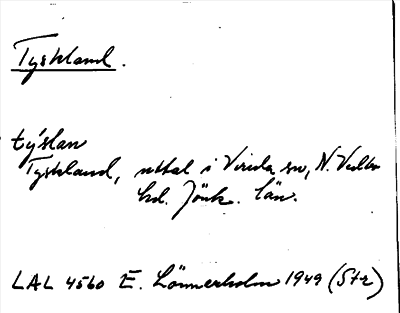 Tyskland.
týslan
Tyskland, uttal i Vireda sn, N. Vedbo
hd. Jönk. län.
LAL 4560 E. Lönnerholm 1949 (Str)